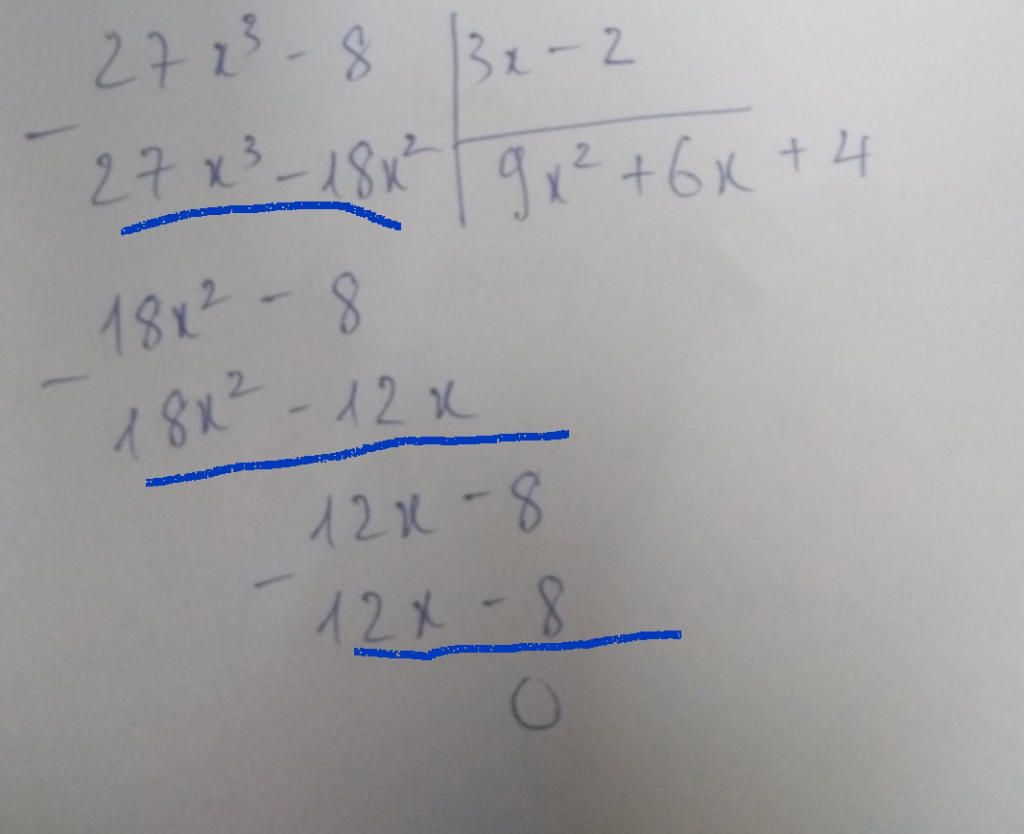 27x³ - 8 | 3x - 2
- 27x³ - 18x² | 9x² + 6x + 4
18x² - 8
- 18x² - 12x
12x - 8
- 12x - 8
0